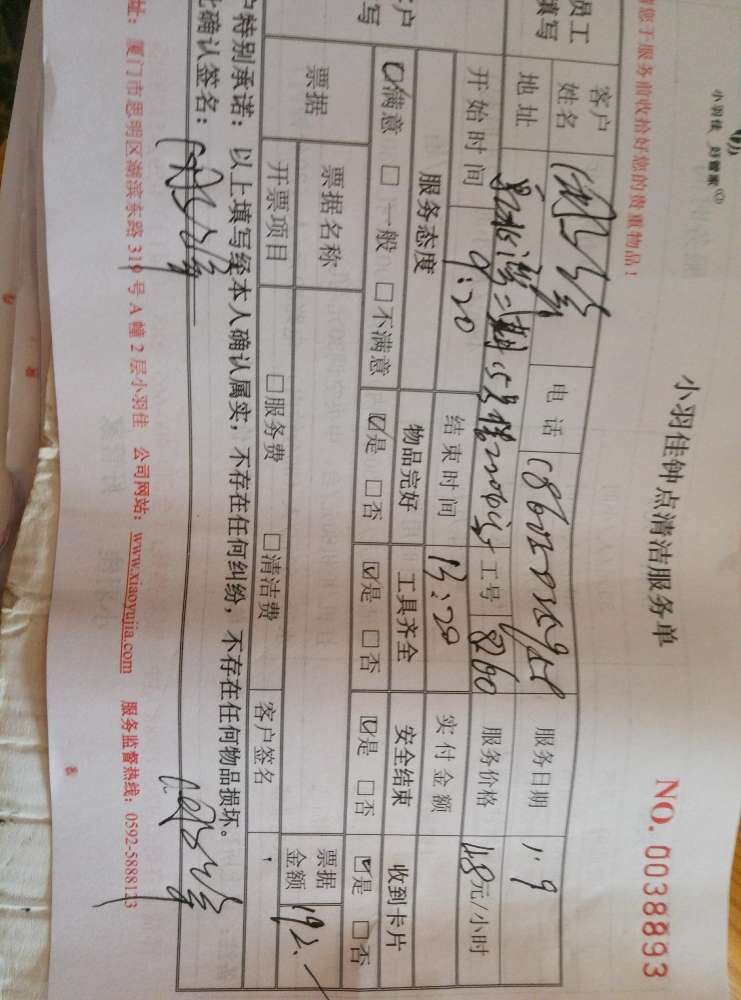 小羽佳 好管家
小羽佳钟点清洁服务单
NO. 0038893
您于服务前收拾好您的贵重物品!
员工填写
客户姓名
电话
服务日期 1.9
地址
工号 8260
服务价格 48元/小时
开始时间 9:20
结束时间 13:20
实付金额
客户填写
服务态度 物品完好 工具齐全 安全结束 收到卡片
☑满意 □一般 □不满意 ☑是 □否 ☑是 □否 ☑是 □否 ☑是 □否
票据
票据名称
票据金额 192.
开票项目 □服务费 □清洁费
客户签名
户特别承诺:以上填写经本人确认属实,不存在任何纠纷,不存在任何物品损坏。
此确认签名:
址:厦门市思明区湖滨东路 319 号 A 幢 2 层小羽佳 公司网站:www.xiaoyujia.com 服务监督热线:0592-5888123